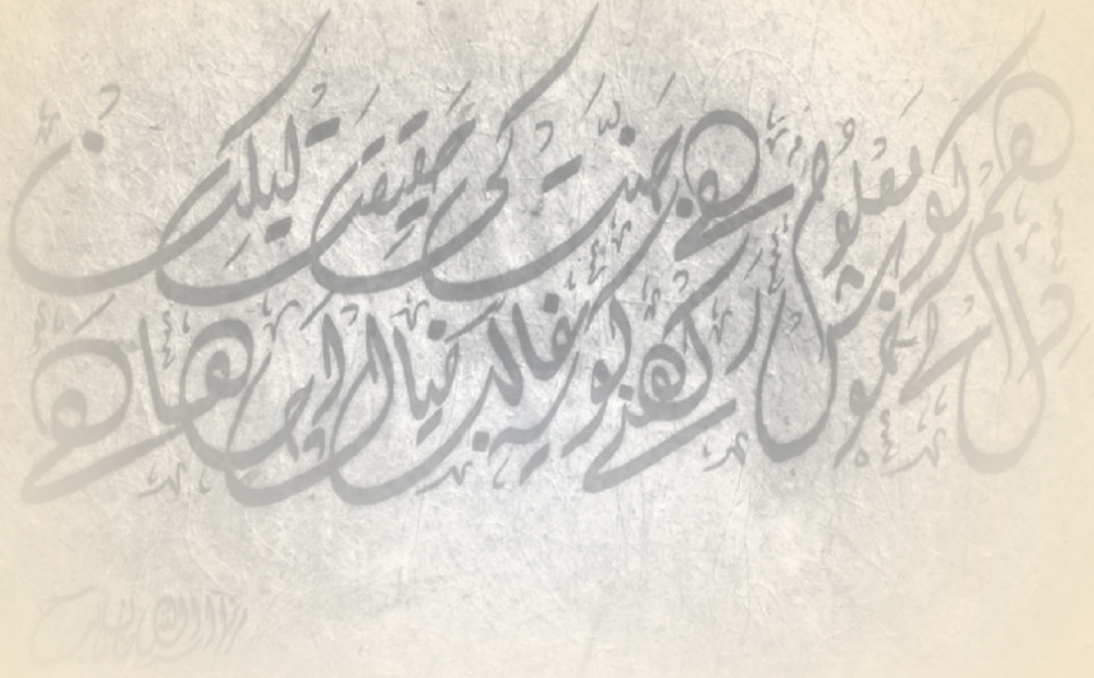 ھم کو معلوم ھے جنت کی حقیقت لیکن
دل کے خوش رکھنے کو غالب یہ خیال اچھا ھے